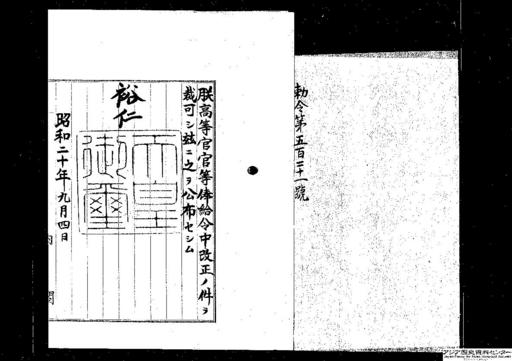 勅令第五百二十一號
朕高等官官等俸給令中改正ノ件ヲ
裁可シ玆ニ之ヲ公布セシム
裕仁
天皇御璽
昭和二十年九月四日
内閣
アジア歴史資料センター